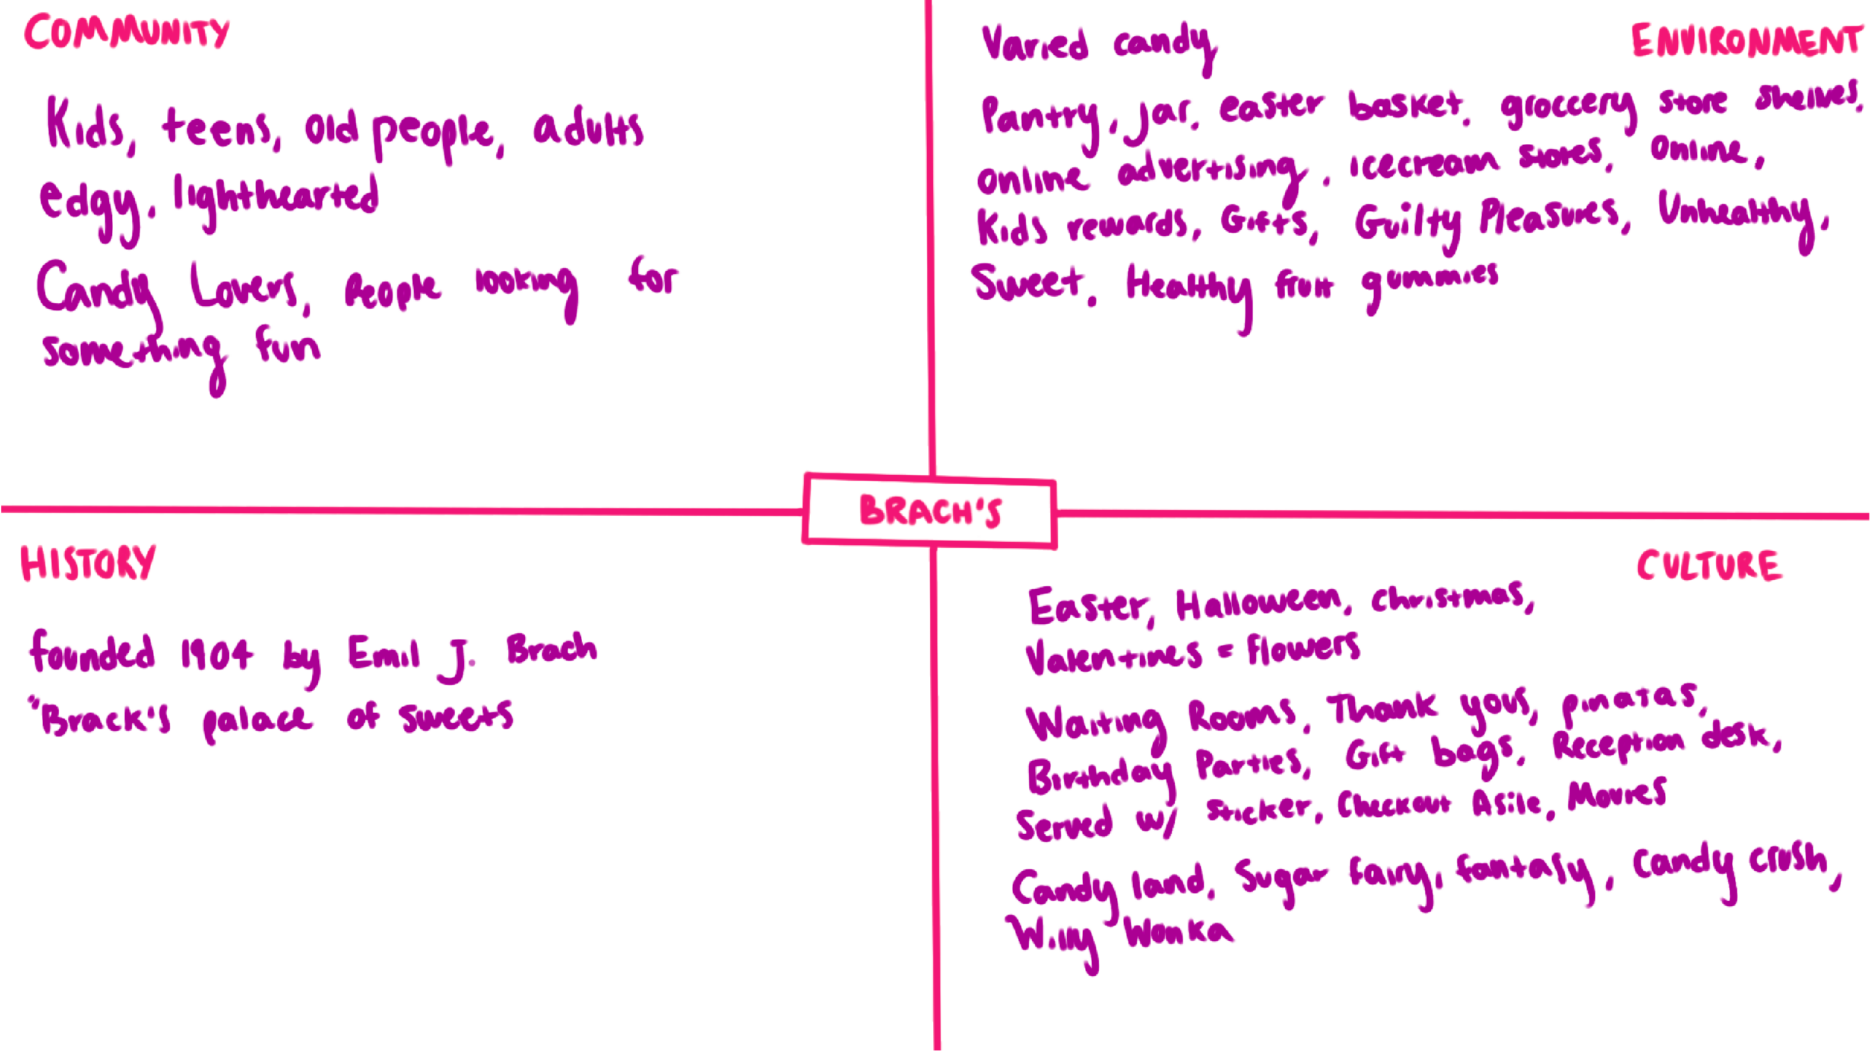 COMMUNITY
Kids, teens, old people, adults
edgy, lighthearted
Candy Lovers, People looking for
something fun
ENVIRONMENT
Varied candy
Pantry, jar, easter basket, groccery store shelves,
online advertising, icecream stores, Online,
Kids rewards, Gifts, Guilty Pleasures, Unhealthy,
Sweet, Healthy fruit gummies
BRACH'S
HISTORY
founded 1904 by Emil J. Brach
"Brack's palace of sweets
CULTURE
Easter, Halloween, Christmas,
Valentines = flowers
Waiting Rooms, Thank yous, pinatas,
Birthday Parties, Gift bags, Reception desk,
Served w/ sticker, Checkout Asile, Movies
Candy land, Sugar fairy, fantasy, Candy crush,
Willy Wonka